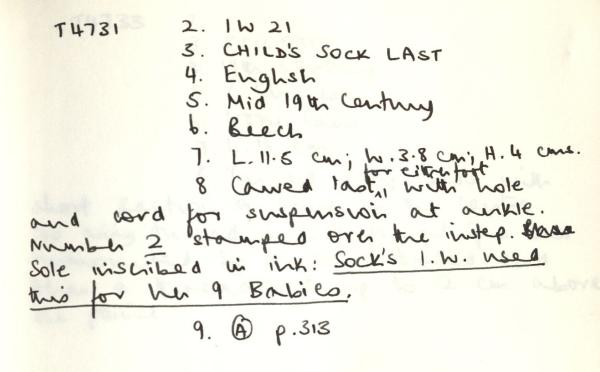 T4731 2. IW 21
3. CHILD'S SOCK LAST
4. English
5. Mid 19th Century
6. Beech
7. L. 11.5 cm; W. 3.8 cm; H. 4 cms.
for either foot
8 Carved last, with hole
and cord for suspension at ankle.
Number 2 stamped over the instep.
Sole inscribed in ink: Sock's I.W. used
this for her 9 Babies.
9. Ⓐ p.313